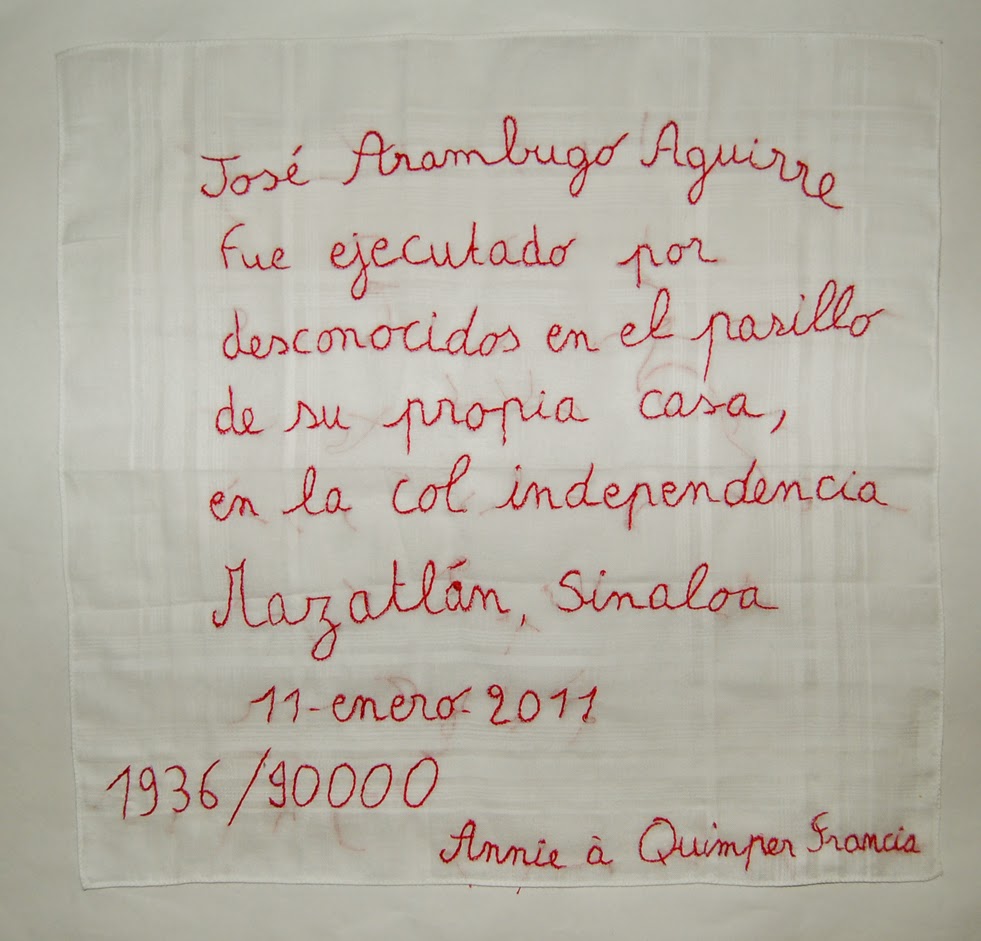 José Arambugo Aguirre
Fue ejecutado por
desconocidos en el pasillo
de su propia casa,
en la col independencia
Mazatlán, Sinaloa
11-enero-2011
1936/90000
Annie à Quimper Francia